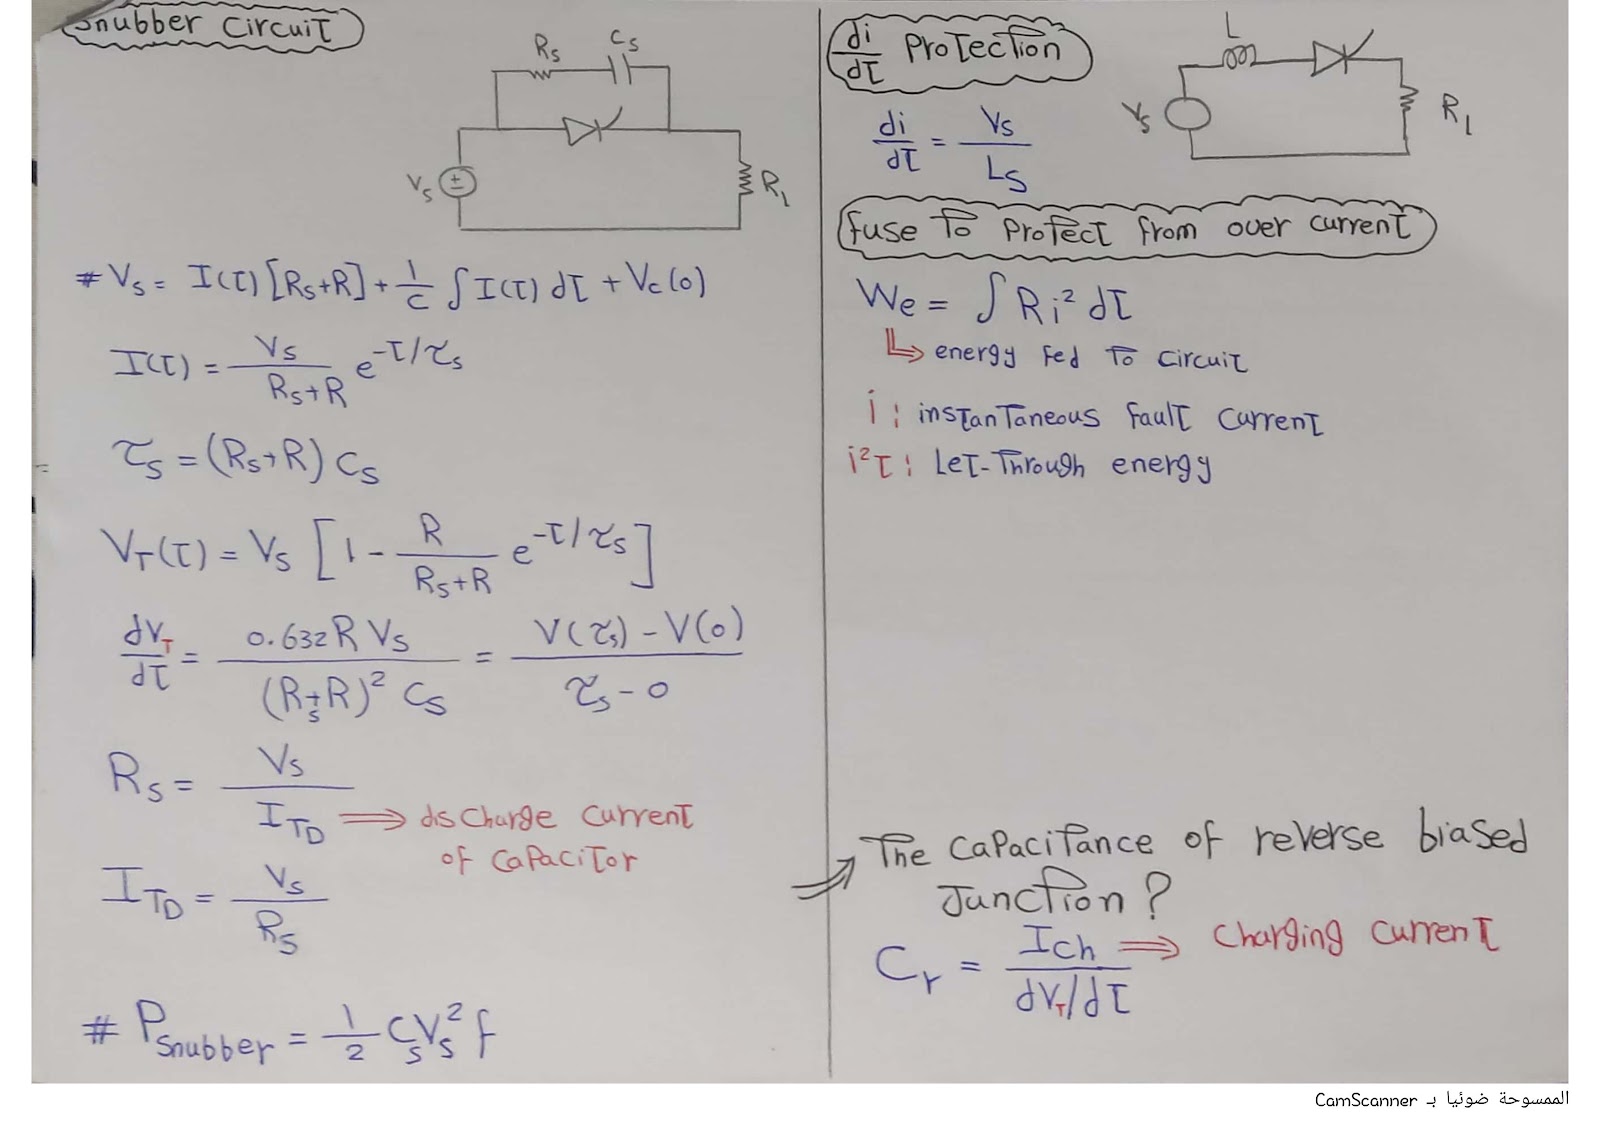 Snubber Circuit
Rs
Cs
Vs
±
R1
# Vs = I(t) [Rs+R] + 1/C ∫ I(t) dt + Vc(0)
I(t) = Vs / (Rs+R) e^(-t/τs)
τs = (Rs+R) Cs
VT(t) = Vs [1 - R/(Rs+R) e^(-t/τs)]
dVT/dt = 0.632 R Vs / ((Rs+R)² Cs) = (V(τs) - V(0)) / (τs - 0)
Rs = Vs / ITD ⇒ discharge current
of capacitor
ITD = Vs / Rs
# Psnubber = 1/2 Cs Vs² f
di/dt Protection
L
Vs
R1
di/dt = Vs / Ls
fuse to protect from over current
We = ∫ R i² dt
↳ energy fed to circuit
i : instantaneous fault current
i²t : Let-Through energy
⇒ The capacitance of reverse biased
Junction ?
Cr = Ich / (dVT/dt) ⇒ charging current
الممسوحة ضوئيا بـ CamScanner